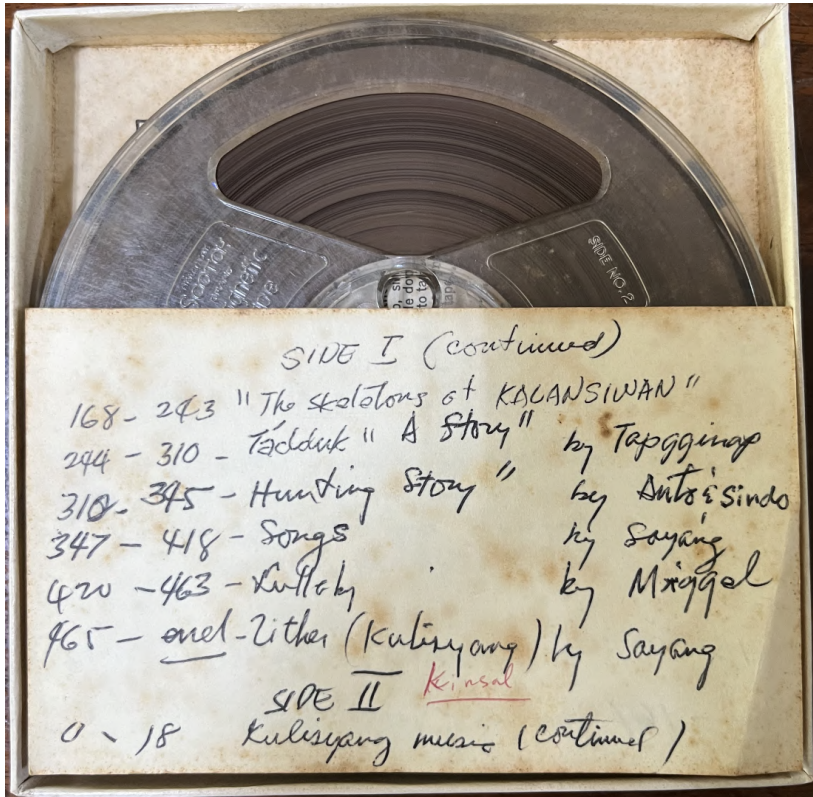 SCOTCH
SIDE NO. 2
SIDE I (continued)
168 - 243 "The skeletons at KALANSIWAN"
244 - 310 - Tádduk "A Story" by Tapgginap
310 - 345 - Hunting Story" by
347 - 418 - Songs by Sayáng
420 - 463 - Lullaby by Miggel
465 - end - Zither (Kulisyang) by Sayang
SIDE II Kinsal
0 - 18 Kulisyang music (continued)